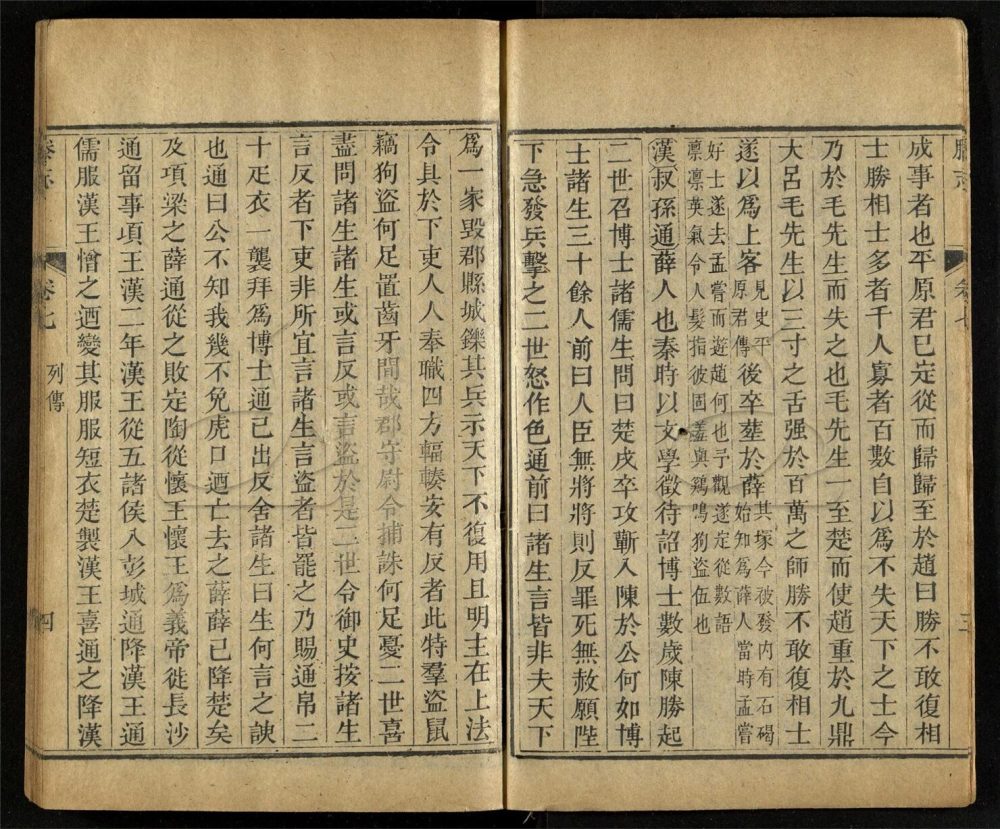 成事者也平原君已定從而歸歸至於趙曰勝不敢復相
士勝相士多者千人寡者百數自以爲不失天下之士今
乃於毛先生而失之也毛先生一至楚而使趙重於九鼎
大呂毛先生以三寸之舌强於百萬之師勝不敢復相士
遂以爲上客見史平原君傳後卒塟於薛其塚今被發内有石碣始知爲薛人當時孟嘗
好士遂去孟嘗而遊趙何也予觀遂定從數語
凛凛英氣令人髮指彼固羞與鷄鳴狗盜伍也
漢叔孫通薛人也秦時以文學徵待詔博士數歲陳勝起
二世召博士諸儒生問曰楚戍卒攻蘄入陳於公何如博
士諸生三十餘人前曰人臣無將將則反罪死無赦願陛
下急發兵擊之二世怒作色通前曰諸生言皆非夫天下
卷七
三
爲一家毀郡縣城鑠其兵示天下不復用且明主在上法
令具於下吏人人奉職四方輻輳安有反者此特羣盜鼠
竊狗盜何足置齒牙間哉郡守尉令捕誅何足憂二世喜
盡問諸生諸生或言反或言盜於是二世令御史按諸生
言反者下吏非所宜言諸生言盜者皆罷之乃賜通帛二
十疋衣一襲拜爲博士通已出反舍諸生曰生何言之諛
也通曰公不知我幾不免虎口迺亡去之薛薛已降楚矣
及項梁之薛通從之敗定陶從懷王懷王爲義帝徙長沙
通留事項王漢二年漢王從五諸侯入彭城通降漢王通
儒服漢王憎之迺變其服服短衣楚製漢王喜通之降漢
卷七
列傳
四